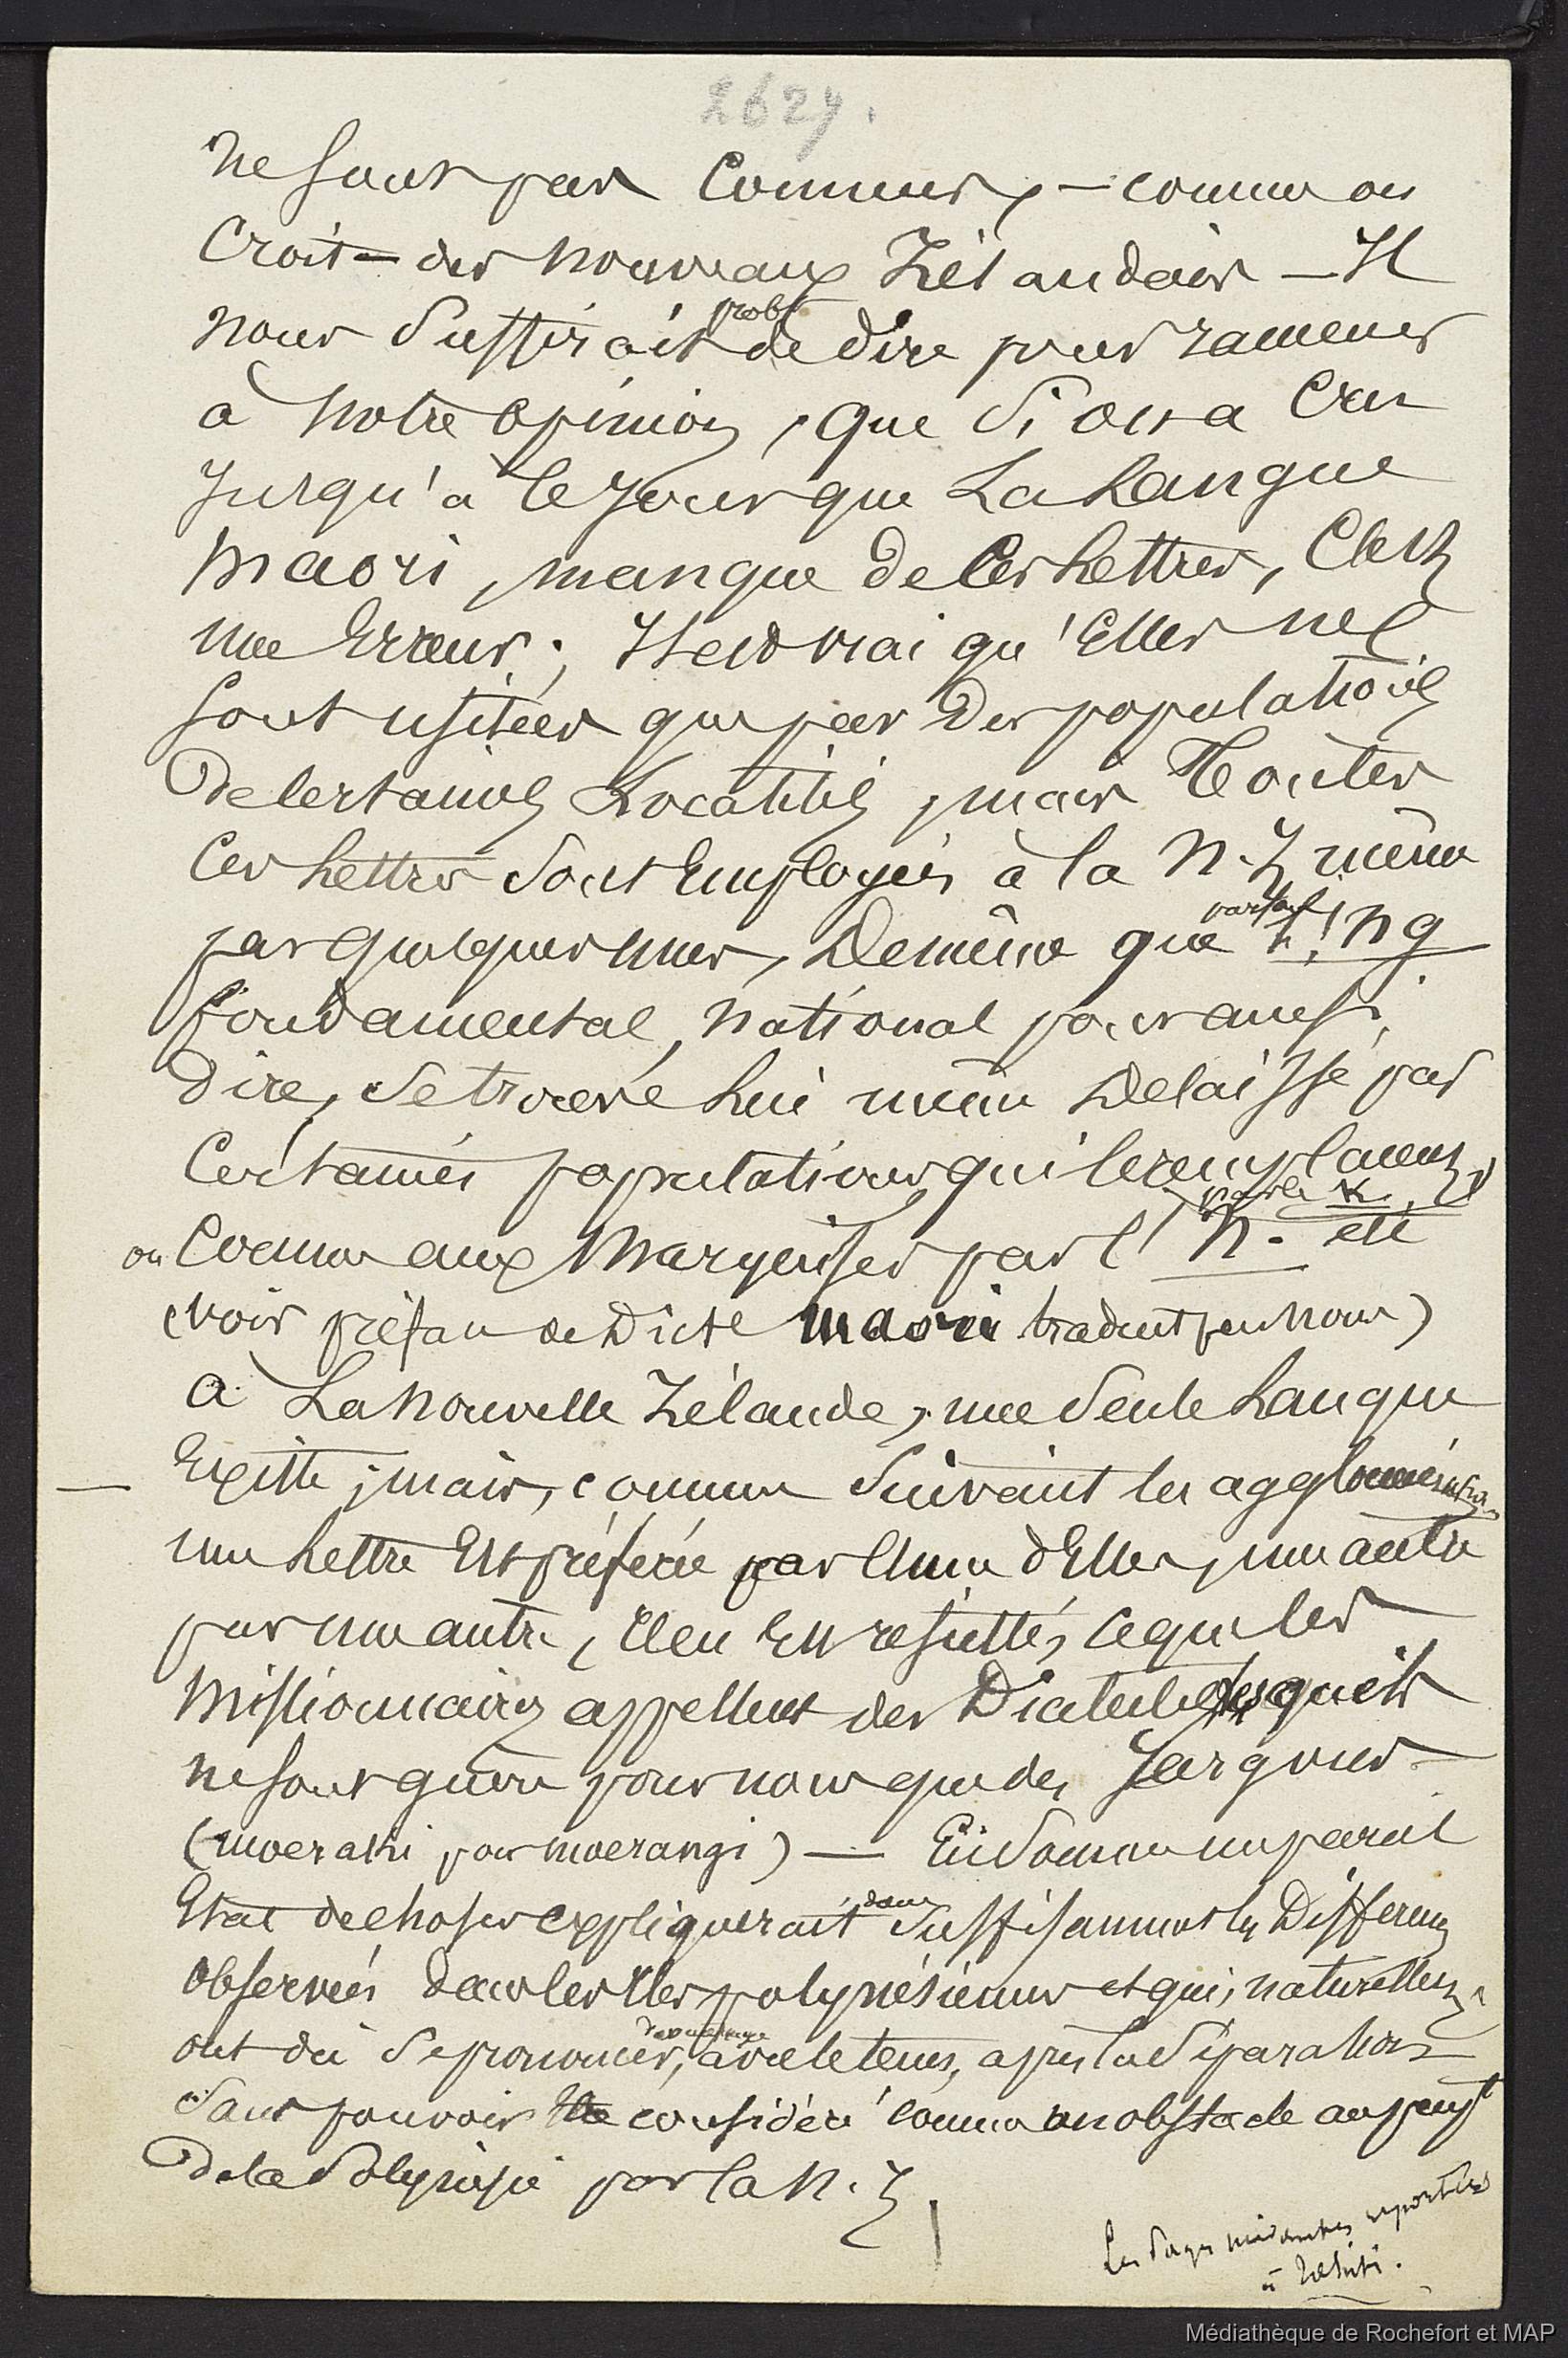 2627.
ne sont pas connues, — comme on
croit — des nouveaux Zélandais — Il
nous suffirait prob.t de dire pour ramener
à notre opinion, que si on a cru
jusqu'à ce jour que la langue
maori, manque de ces lettres, c'est
une erreur ; Il est vrai qu'elles ne
sont usitées que par des populations
de certaines localités, mais toutes
ces lettres sont employées à la N. Z même
par quelques unes, de même que parfois l' ng
fondamental, national pour aussi
dire, se trouve lui même délaissé par
certaines populations qui le remplacent
par le K
ou comme aux Marquises par l' n. etc
(voir préface de Dict.e maori traduit par nous)
à La nouvelle Zélande, une seule langue
— Existe ; mais, comme suivant les agglomérations
une lettre est préférée par l'une d'elles, une autre
par une autre, il en est résulté, ce que les
missionnaires appellent des Dialectes, lesquels
ne sont guère pour nous que des jargons —
(moeraki pour moerangi) — En somme un pareil
Etat de choses expliquerait donc suffisamment les différences
observées dans les Iles polynésiennes et qui, naturellem.t
ont dû se prononcer, davantage avec le tems, après la séparation
sans pouvoir être considéré comme un obstacle au peupl.t
de la Polynésie par la N. Z
Les pages suivantes reportées
à Tahiti.
Médiathèque de Rochefort et MAP